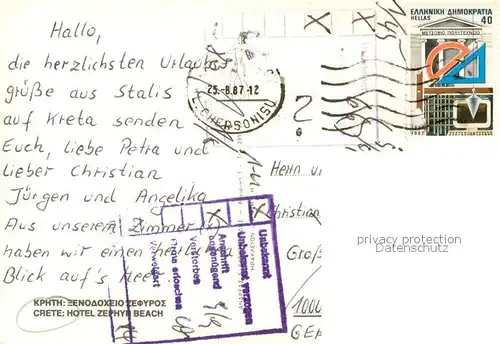 Hallo,
die herzlichsten Urlaubs
grüße aus Stalis
auf Kreta senden
Euch, liebe Petra und
lieber Christian
Jürgen und Angelika
Aus unserem Zimmer
haben wir einen herrlichen
Blick auf's Meer
ΚΡΗΤΗ: ΞΕΝΟΔΟΧΕΙΟ ΖΕΦΥΡΟΣ
CRETE: HOTEL ZEPHYR BEACH
25.-8.87-12
L. CHERSONISOU
ΕΛΛΗΝΙΚΗ ΔΗΜΟΚΡΑΤΙΑ
HELLAS 40
ΜΕΤΣΟΒΙΟ ΠΟΛΥΤΕΧΝΕΙΟ
Herrn u
Christian
Groß
1000
GER
privacy protection
Unbekannt
Unbekannt verzogen
Anschrift
ungenügend
Verstorben
Firma erloschen
Verweigert